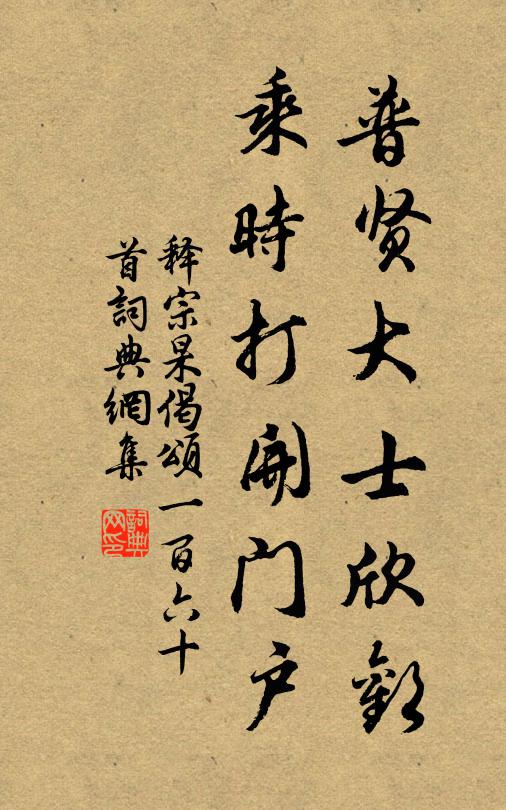 普贤大士欣歡
乘時打開门户
释宗杲偈頌一百六十
首詞典網集
詞典
网印